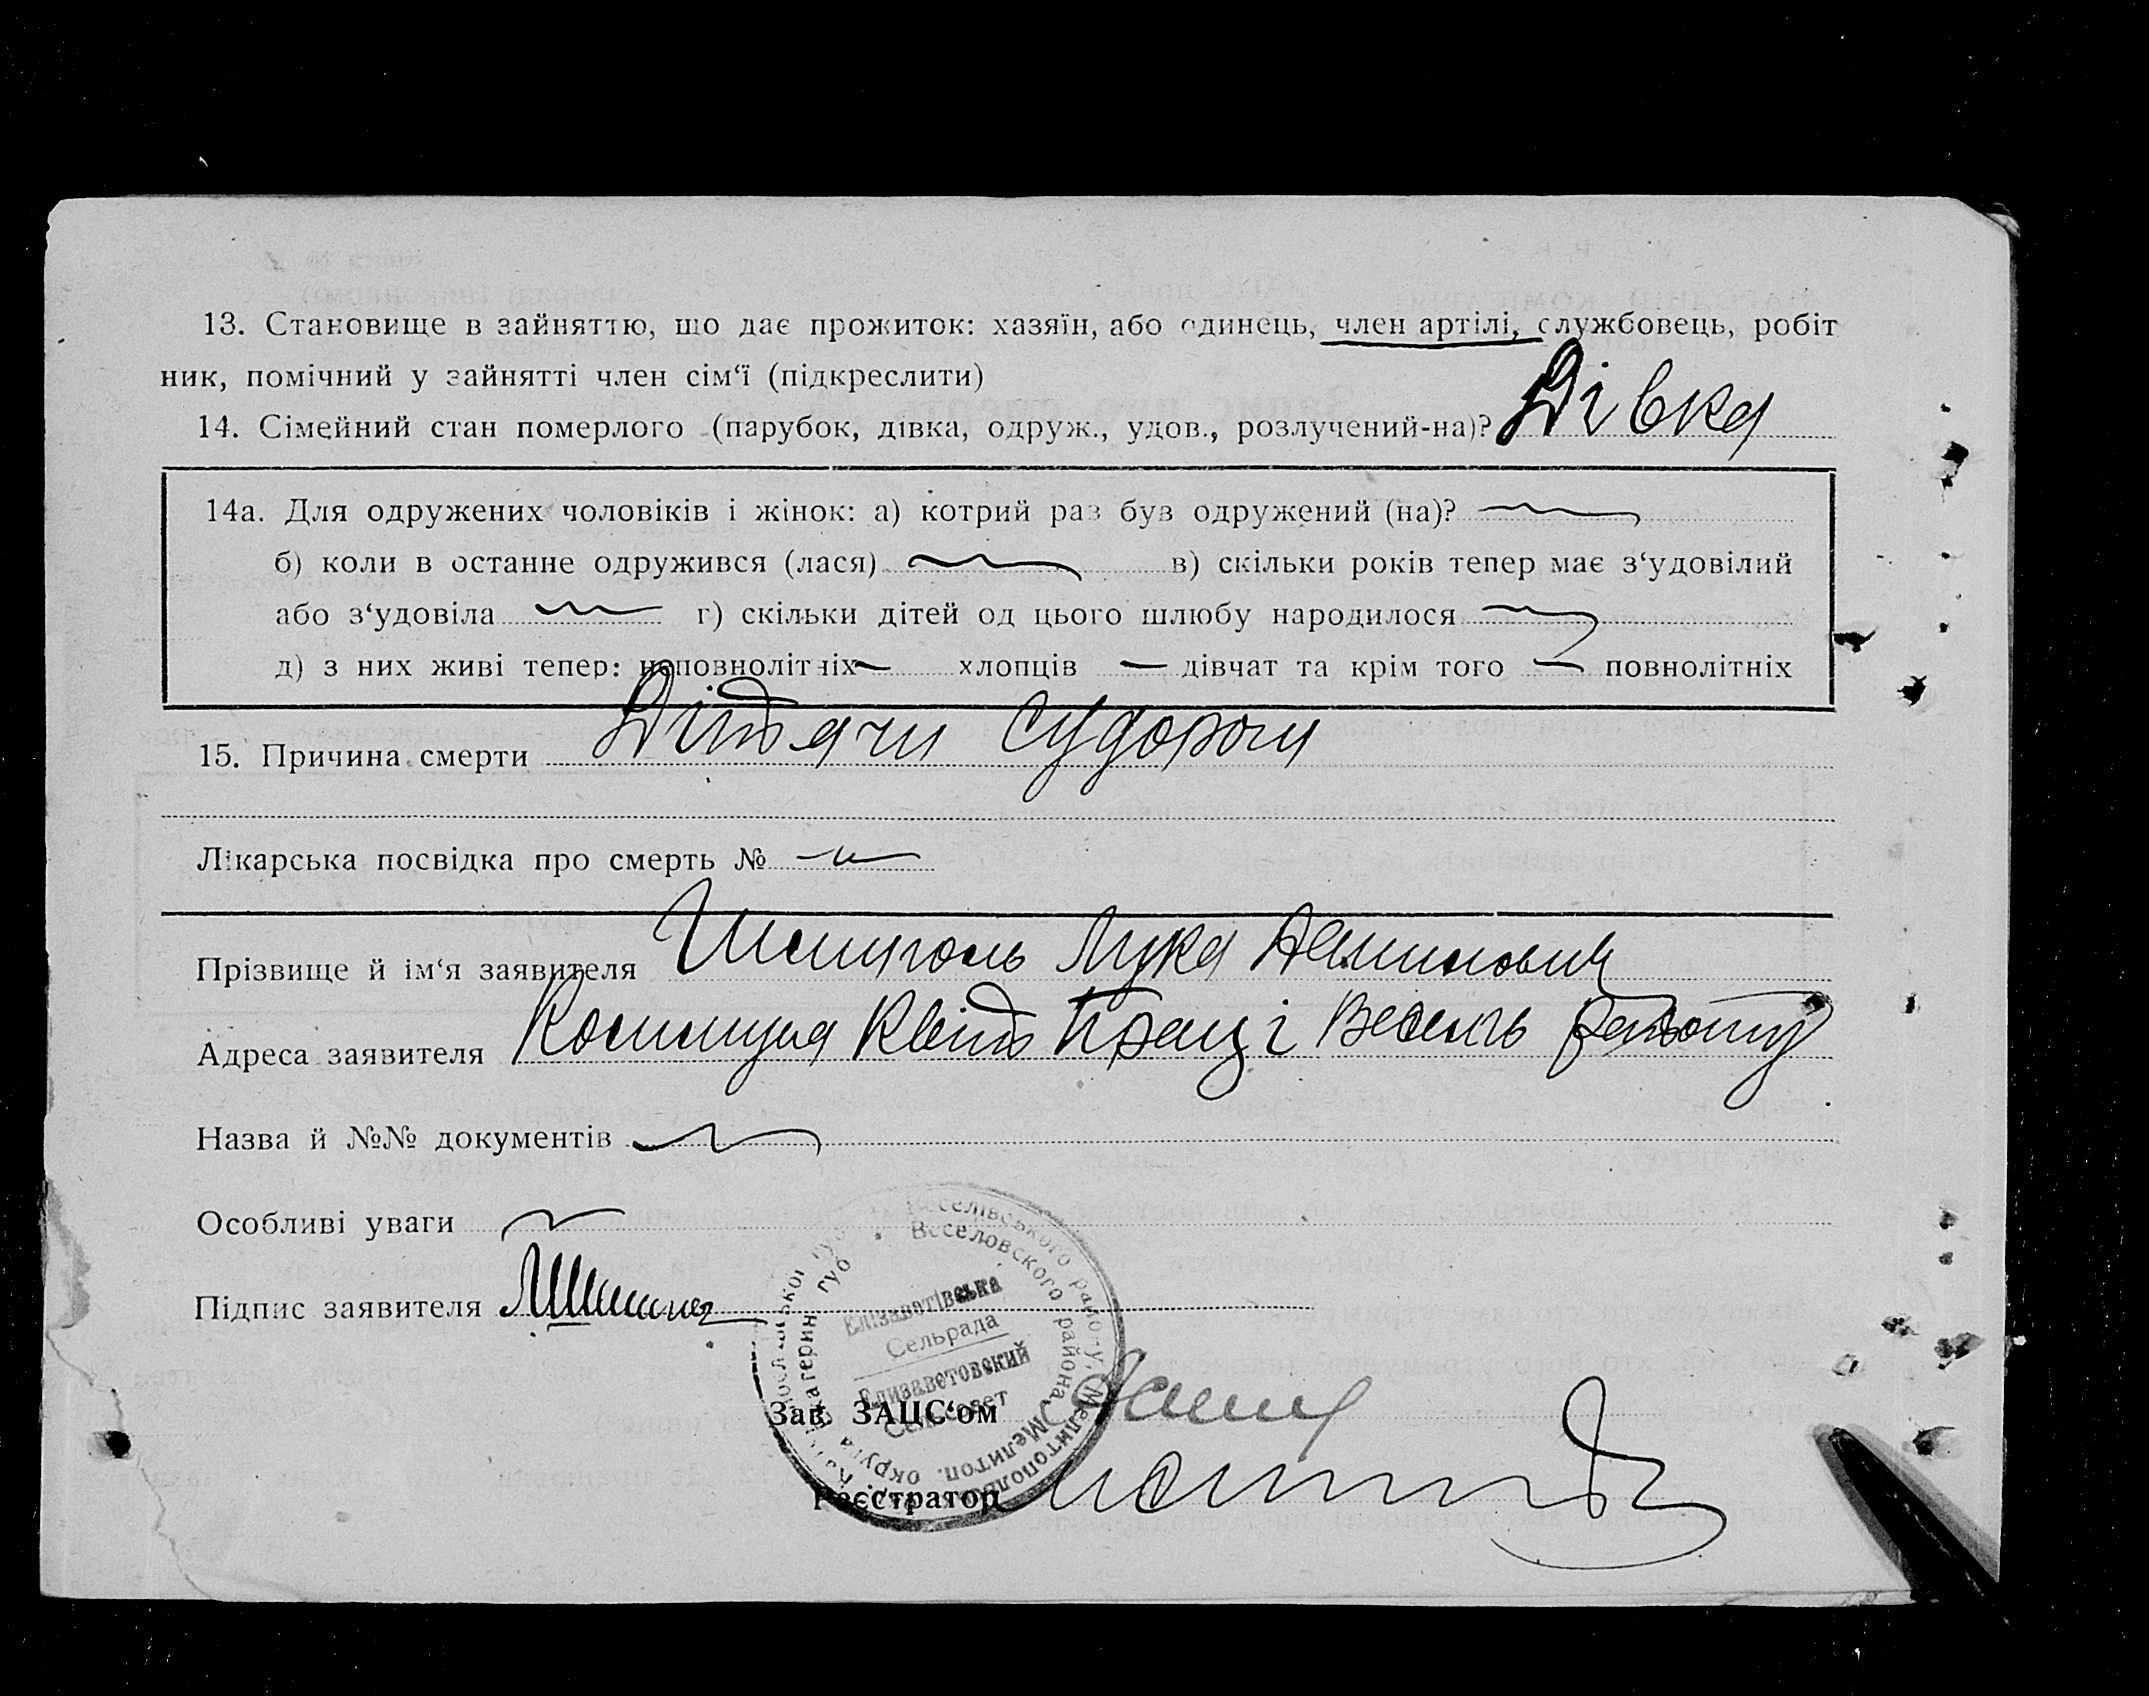 13. Становище в зайняттю, що дає прожиток: хазяїн, або одинець, член артілі, службовець, робіт
ник, помічний у зайнятті член сім‘ї (підкреслити)
14. Сімейний стан померлого (парубок, дівка, одруж., удов., розлучений-на)? Дівка
14а. Для одружених чоловіків і жінок: а) котрий раз був одружений (на)?
б) коли в останнє одружився (лася) в) скільки років тепер має з‘удовілий
або з‘удовіла г) скільки дітей од цього шлюбу народилося
д) з них живі тепер: неповнолітніх хлопців дівчат та крім того повнолітніх
15. Причина смерти Дітячи судороги
Лікарська посвідка про смерть №
Прізвище й ім‘я заявителя Лука
Адреса заявителя Коммуна Квіт Праці Весел. району
Назва й №№ документів
Особливі уваги
Підпис заявителя
Веселівського райо-у, Мелітопольс
Веселовского района, Мелитоп. округа Екатеринос губ
Елізаветівська
Сельрада
Елизаветовский
Сельсовет
Зав. ЗАЦС‘ом
Реєстратор